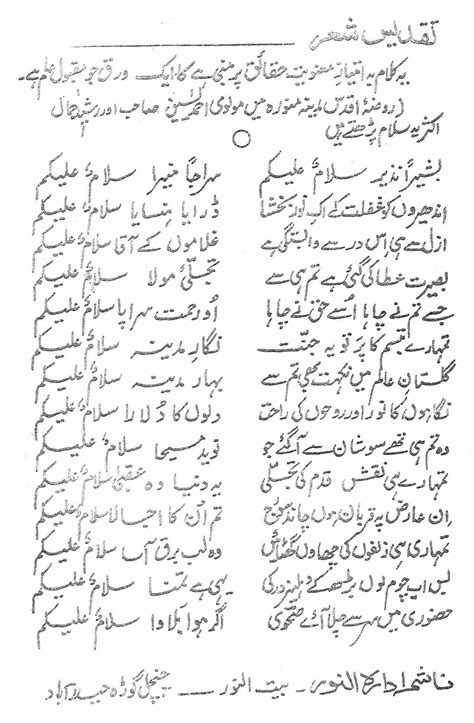 تقدیس شعر
یہ کلام بہ امتیاز معنویت حقائق پر مبنی ہے کا ایک ورق جو مقبول عام ہے۔
(روضۂ اقدس مدینہ منورہ میں مولوی احمد حسین صاحب اور رشید جمال
اکثر یہ سلام پڑھتے ہیں
بشیراً نذیر سلامٌ علیکم سراجاً منیرا سلامٌ علیکم
اندھیروں کو غفلت کے اک نور بخشا ڈرایا ہنسایا سلامٌ علیکم
ازل سے ہی اس در سے وابستگی ہے غلاموں کے آقا سلامٌ علیکم
بصیرت عطا کی گئی ہے تم ہی سے تجلّئ مولا سلامٌ علیکم
جسے تم نے چاہا اُسے حق نے چاہا اور رحمت سراپا سلامٌ علیکم
تمہارے تبسم کا پرتو یہ جنّت نگارِ مدینہ سلامٌ علیکم
گلستانِ عالم میں نکہت بھی تم سے بہار مدینہ سلامٌ علیکم
نگاہوں کا نور اور روحوں کی راحت دلوں کا دُلارا سلامٌ علیکم
وہ تم ہی تھے سو شان سے آ گئے جو نوید مسیحا سلامٌ علیکم
تمہارے ہی نقش قدم کی تجلّی یہ دنیا وہ عقبیٰ سلامٌ علیکم
اِن عارض پہ قربان ہوں چاند سورج تم اُن کا اجالا سلامٌ علیکم
تمہاری ہی زلفوں کی چھاؤں گھٹائیں وہ لب برق آسا سلامٌ علیکم
بس اب چوم لوں بڑھکے دہلیز در کی یہی ہے تمنا سلامٌ علیکم
حضوری میں سر سے چلا آئے صحوی اگر ہو بُلاوا سلامٌ علیکم
ناشر ادارہ النور۔ بیت النور۔ چنچل گوڈہ حیدرآباد